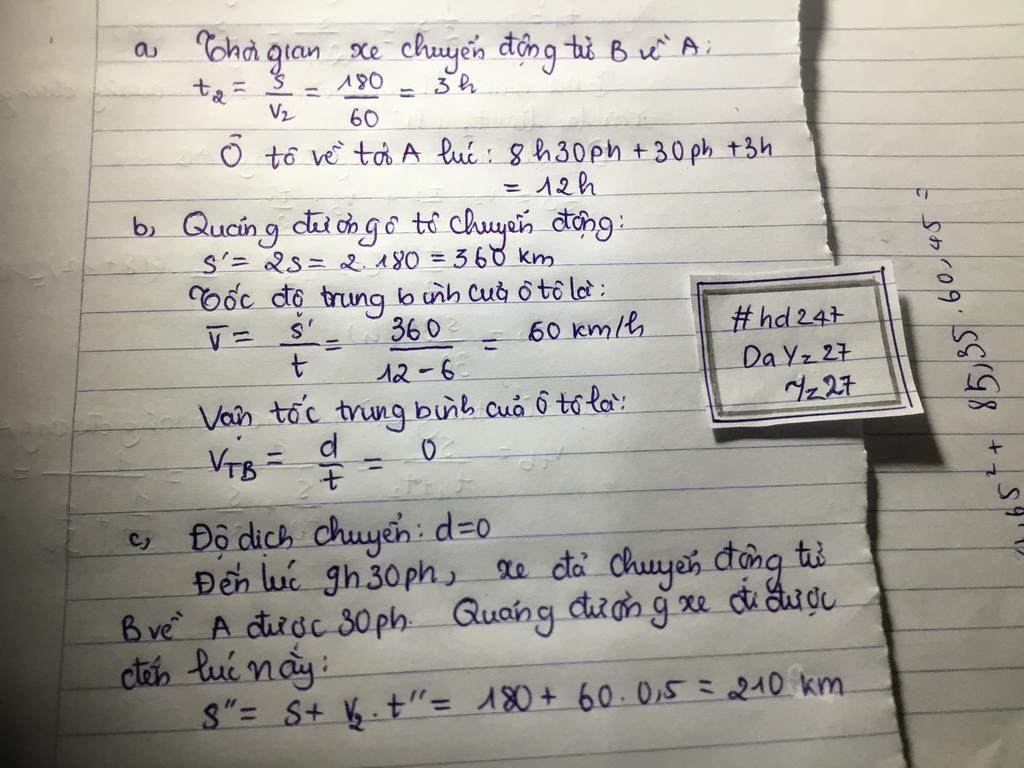 a, Thời gian xe chuyển động từ B về A:
t₂ = s/v₂ = 180/60 = 3h
Ô tô về tới A lúc: 8h30ph + 30ph + 3h
= 12h
b, Quãng đường ô tô chuyển động:
s' = 2s = 2.180 = 360 km
Tốc độ trung bình của ô tô là:
v̅ = s'/t = 360/12-6 = 60 km/h
Vận tốc trung bình của ô tô là:
v_TB = d/t = 0
c, Độ dịch chuyển: d=0
Đến lúc 9h30ph, xe đã chuyển động từ
B về A được 30ph. Quãng đường xe đi được
đến lúc này:
s'' = s + v₂.t'' = 180 + 60.0,5 = 210 km
#hd247
DaYz27
Yz27
65² + 85,35.60,45 =